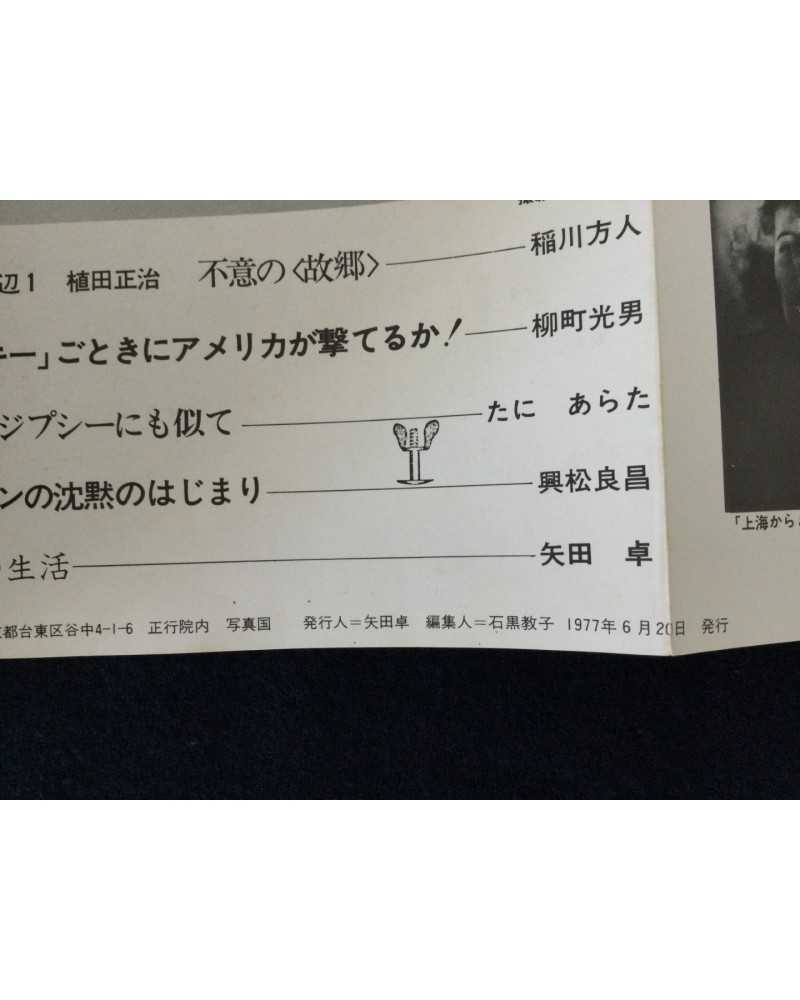 辺1 植田正治 不意の〈故郷〉 稲川方人
キー」ごときにアメリカが撃てるか! 柳町光男
ジプシーにも似て たに あらた
ンの沈黙のはじまり 興松良昌
生活 矢田 卓
京都台東区谷中4-1-6 正行院内 写真国 発行人=矢田卓 編集人=石黒教子 1977年6月20日 発行
「上海から